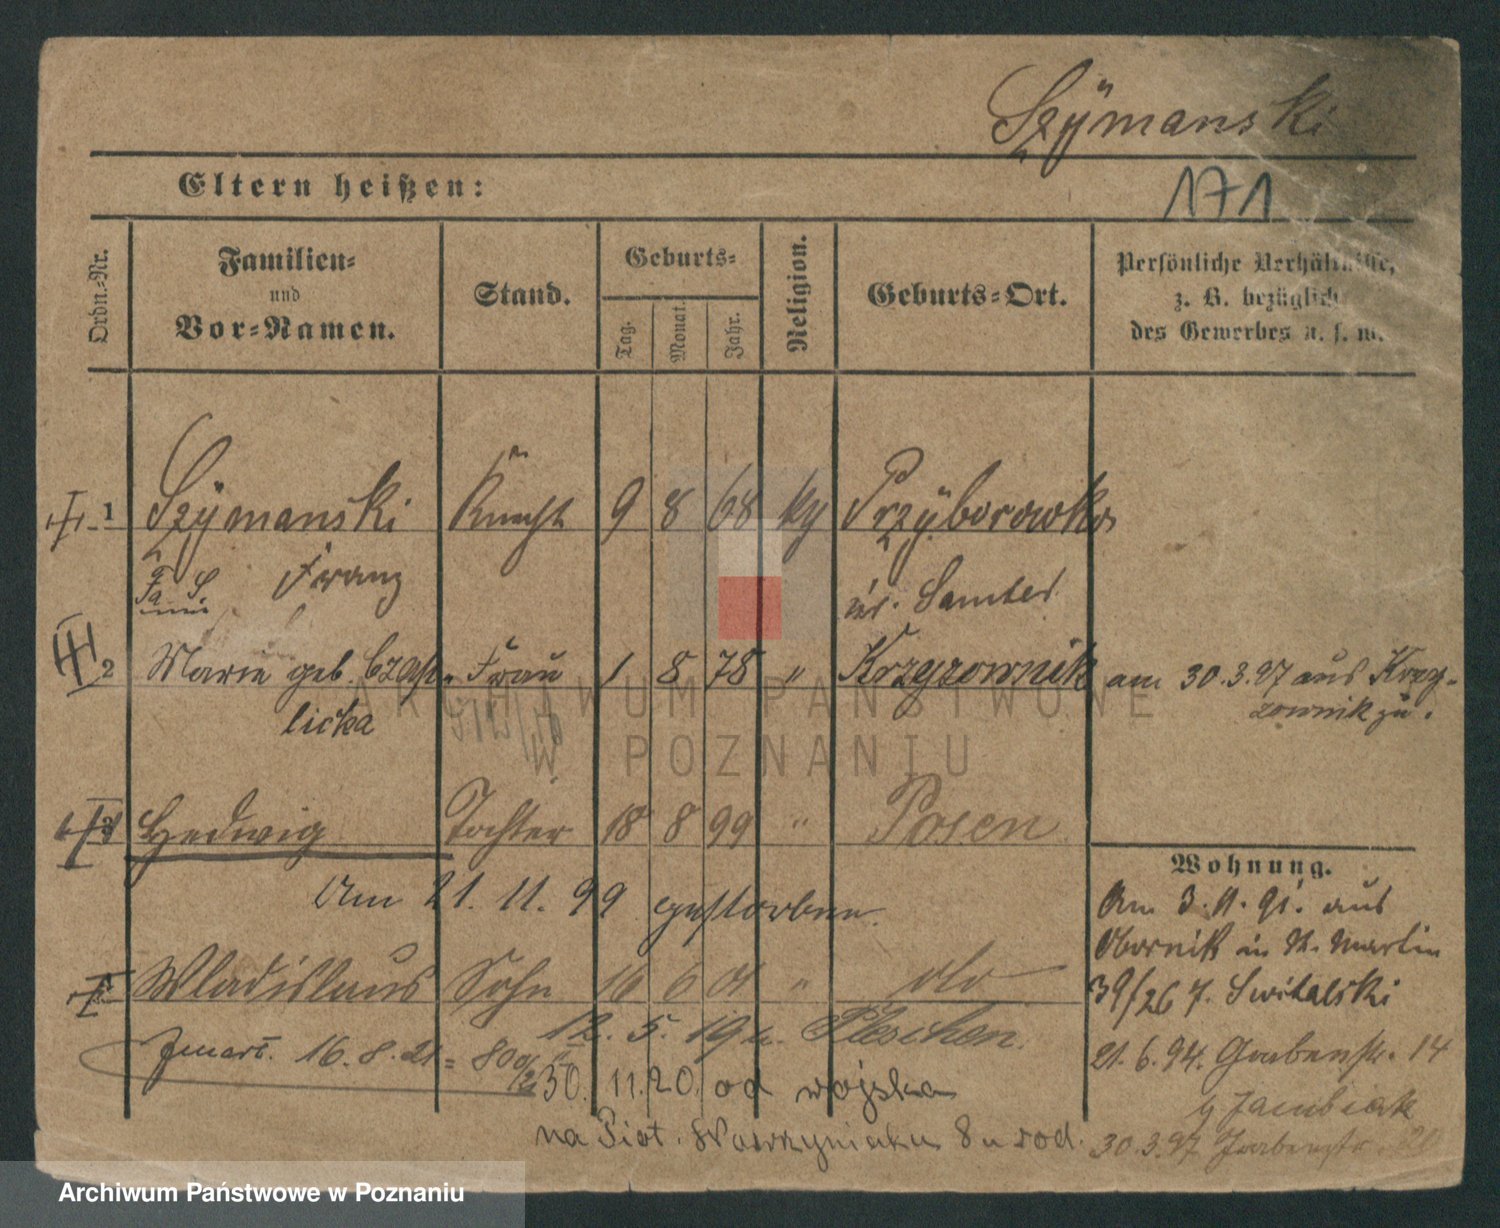 Szÿmanski
Eltern heißen:
171
Ordn.-Nr.
Familien-
und
Vor-Namen.
Stand.
Geburts-
Tag.
Monat.
Jahr.
Religion.
Geburts-Ort.
Persönliche Verhältnisse,
z. B. bezüglich
des Gewerbes u. s. w.
1 Szÿmanski Knecht 9 8 68 Przÿborowko
Franz Samter
2 Marie geb. Frau 1 8 78 " Krzyzownik am 30.3.97 aus Krzy-
licka zownik zu.
3 Hedwig Tochter 18 8 99 " Posen
Am 21. 11. 99 gestorben.
Wladislaus Sohn 16 6 01 " dto
12. 5. 19 n. Pleschen.
16. 8. 21
30. 11. 20. od wojska
na Piot. Wawrzyniaka 8 u rod.
Wohnung.
Am 3. 11. 91. aus
Obornik in St. Martin
39/26 7. Switalski
21. 6. 94. Grabenstr. 14
30. 3. 97 Grabenstr.
ARCHIWUM PAŃSTWOWE
W POZNANIU
Archiwum Państwowe w Poznaniu